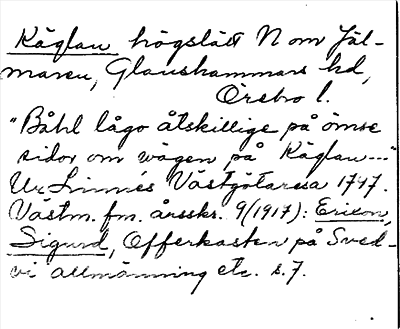 Käglan högslätt N om Jäl-
maren, Glanshammars hd,
Örebro l.
"Båhl lågo åtskillige på ömse
sidor om wägen på Käglan---"
Ur Linnés Västgötaresa 1747.
Västm. fm. årsskr. 9(1917): Erixon,
Sigurd, Offerkasten på Sved-
vi allmänning etc. s.7.